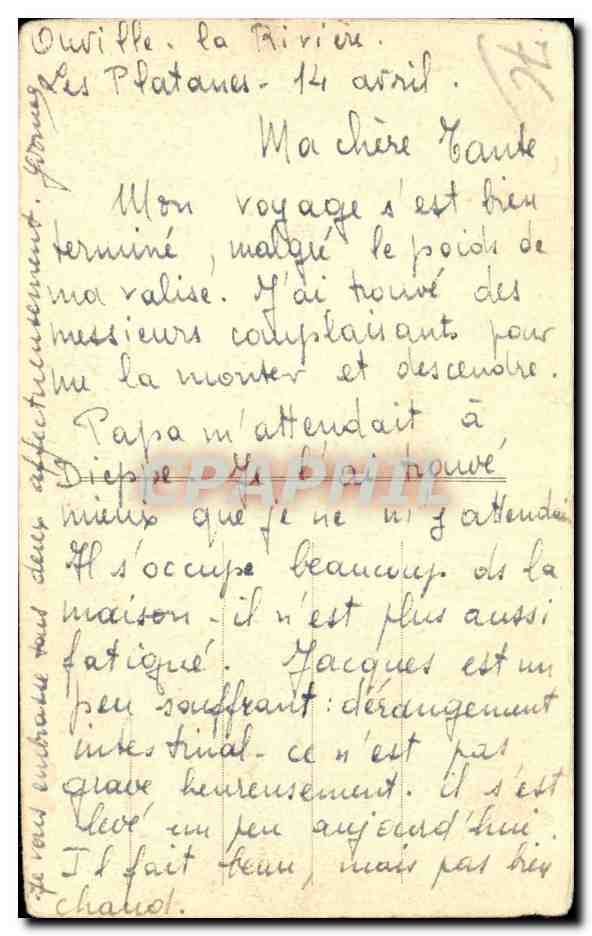 Ouville. la Rivière.
Les Platanes - 14 avril.
Ma chère Tante
Mon voyage s'est bien
terminé, malgré le poids de
ma valise. J'ai trouvé des
messieurs complaisants pour
me la monter et descendre.
Papa m'attendait à
Dieppe - Je l'ai trouvé
mieux que je ne m'y attendai
Il s'occupe beaucoup ds la
maison - il n'est plus aussi
fatigué. Jacques est un
peu souffrant : dérangement
intestinal - ce n'est pas
grave heureusement. il s'est
levé un peu aujourd'hui.
Il fait beau, mais pas bien
chaud.
Je vous embrasse tous deux affectueusement.
CPAPHIL